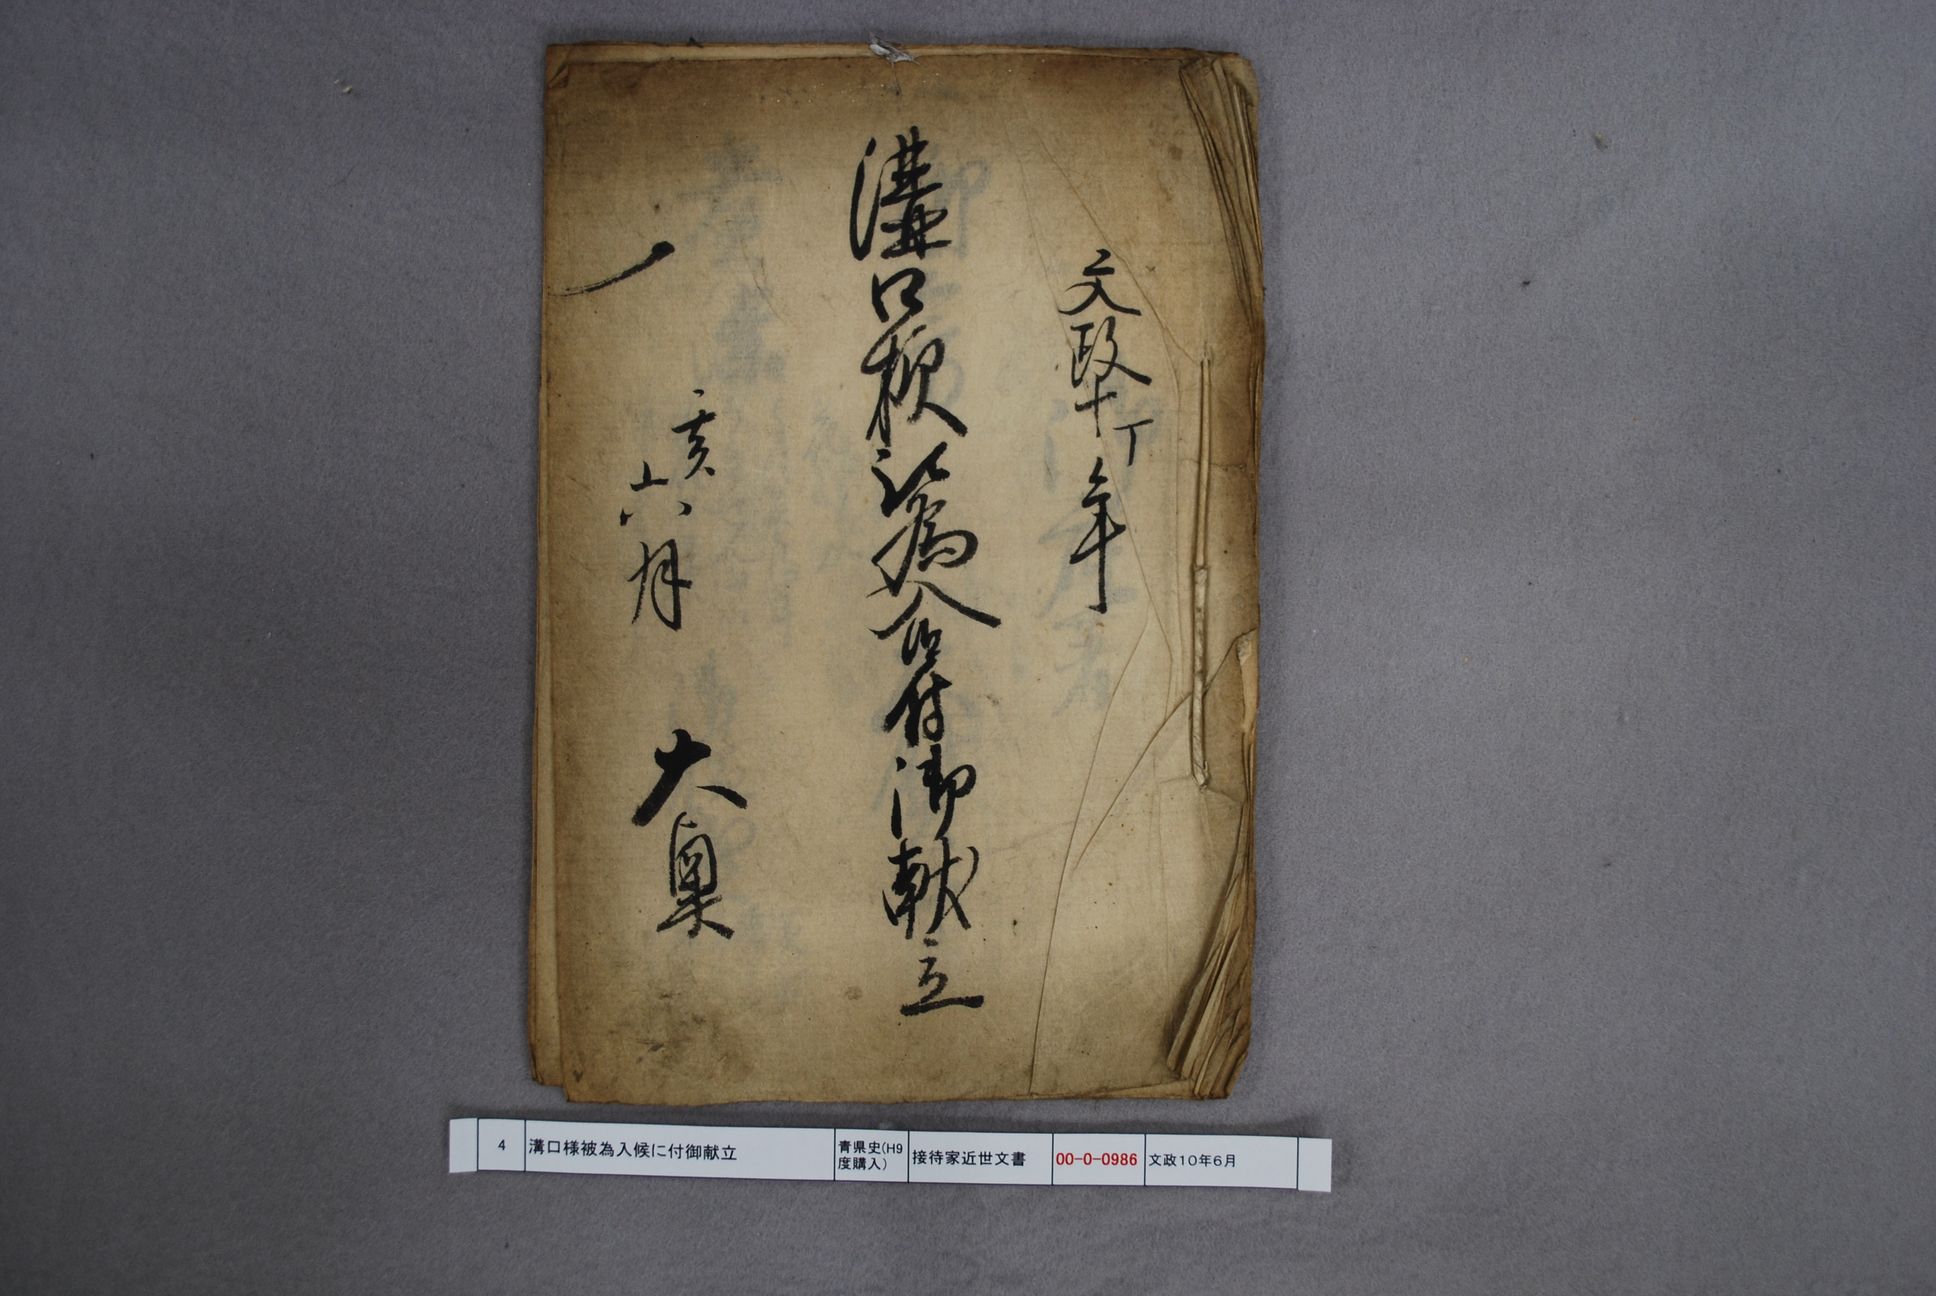 文政十丁年
溝口様被為入候付御献立
亥六月 大奥
4 溝口様被為入候に付御献立 青県史(H9度購入) 接待家近世文書 00-0-0986 文政10年6月